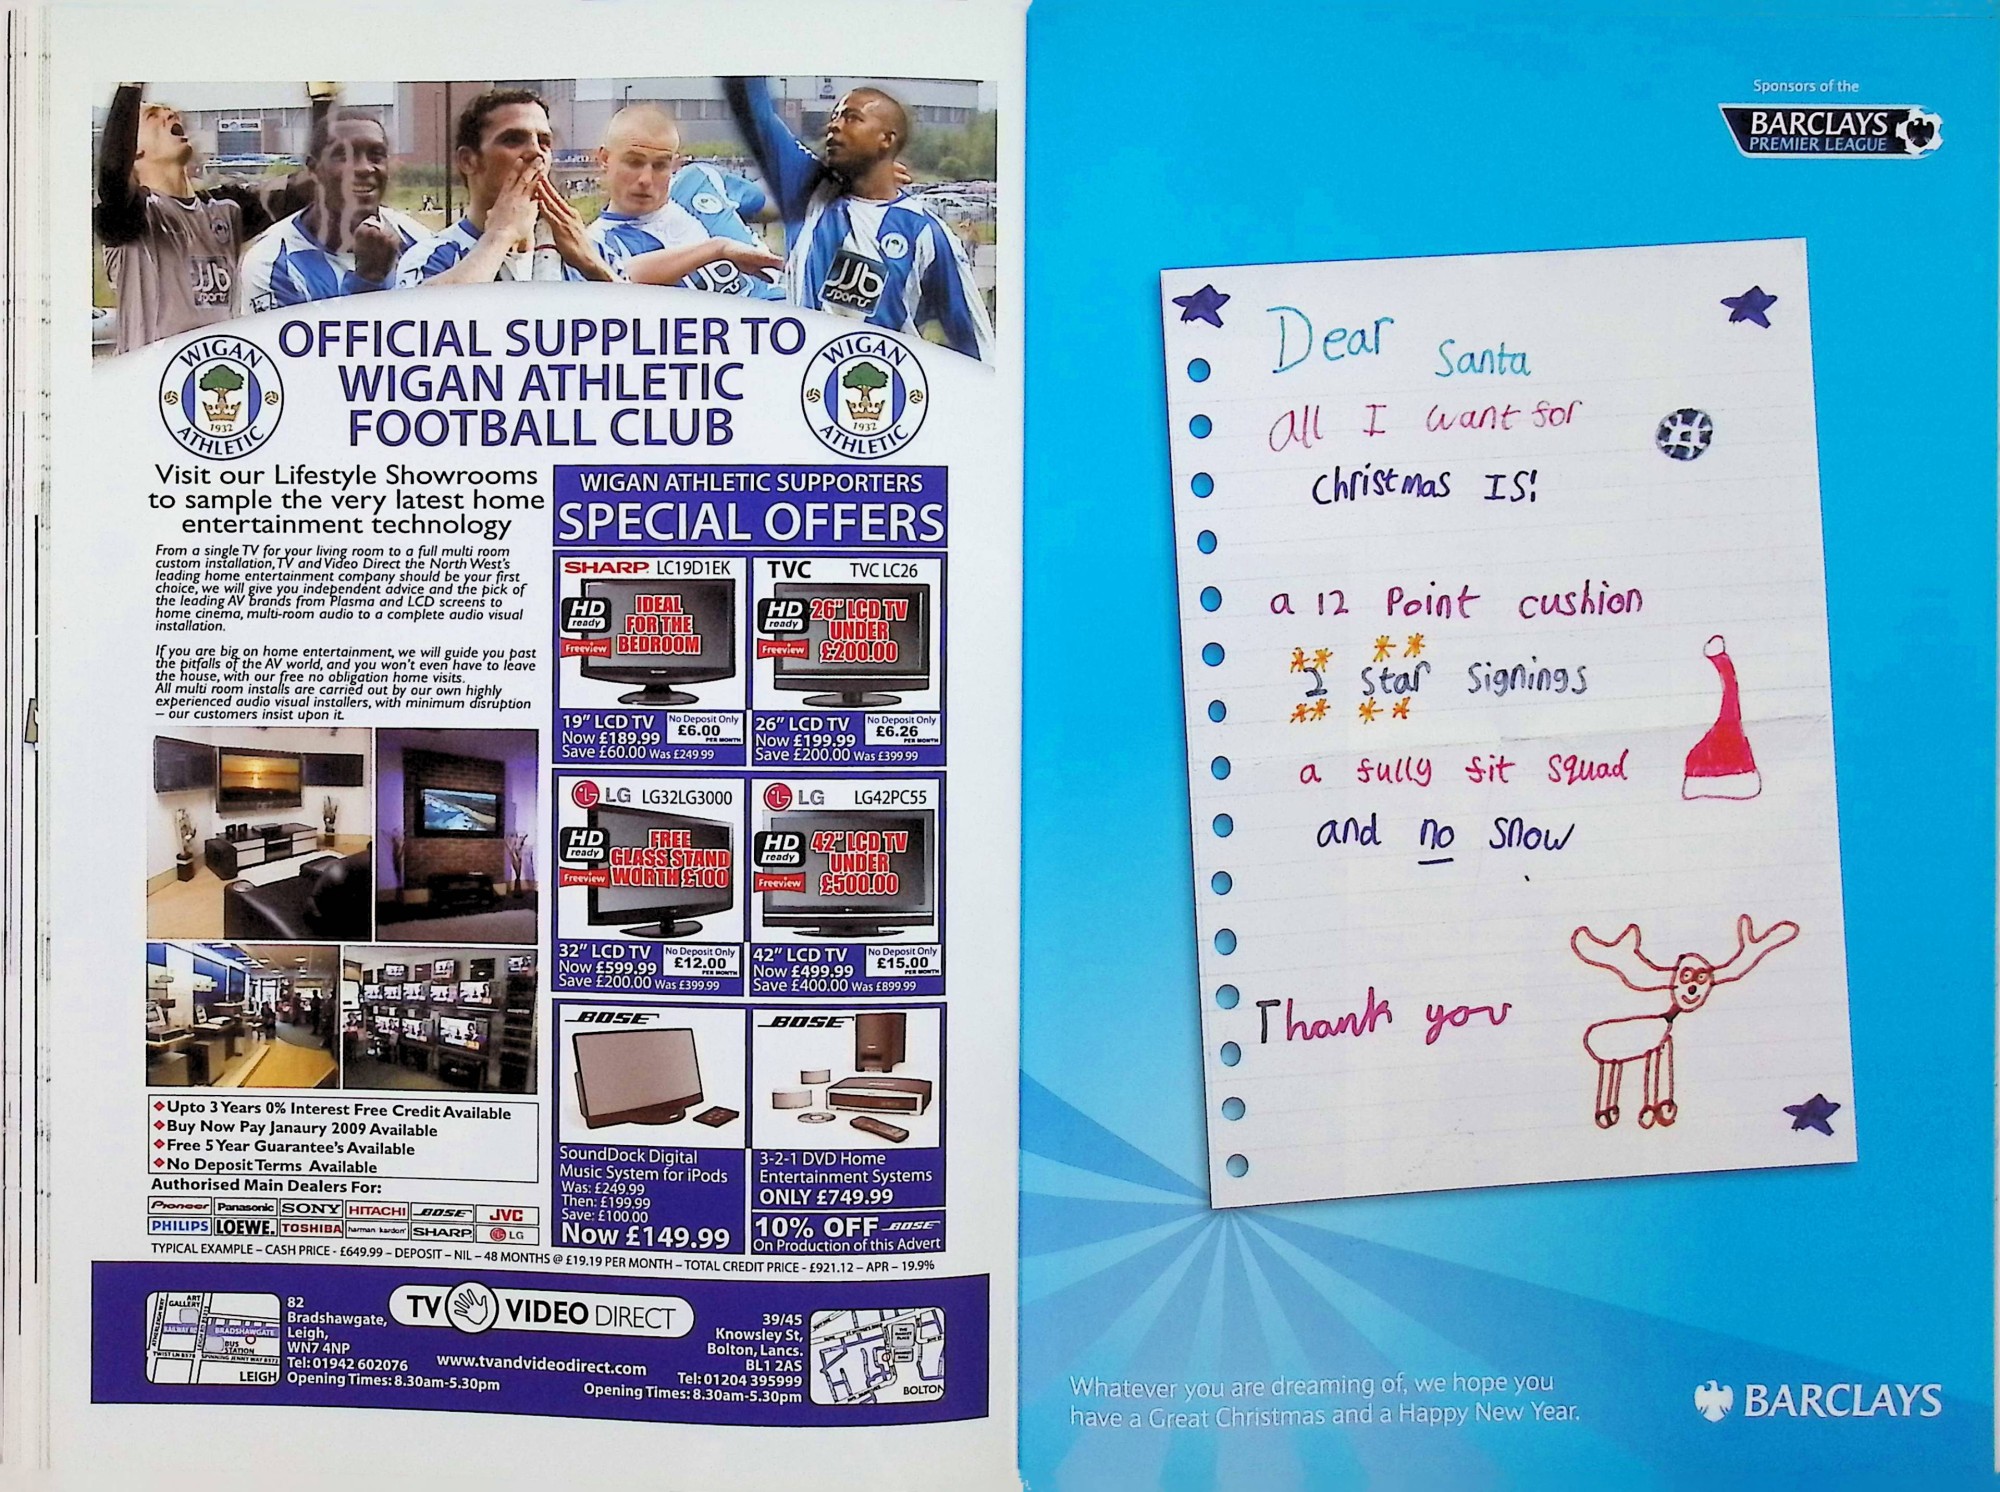 OFFICIAL SUPPLIER TO
WIGAN ATHLETIC
FOOTBALL CLUB
WIGAN
1932
ATHLETIC
WIGAN
1932
ATHLETIC
JJB
sports
JJB
sports
Visit our Lifestyle Showrooms
to sample the very latest home
entertainment technology
From a single TV for your living room to a full multi room
custom installation, TV and Video Direct the North West's
leading home entertainment company should be your first
choice, we will give you independent advice and the pick of
the leading AV brands from Plasma and LCD screens to
home cinema, multi-room audio to a complete audio visual
installation.
If you are big on home entertainment, we will guide you past
the pitfalls of the AV world, and you won't even have to leave
the house, with our free no obligation home visits.
All multi room installs are carried out by our own highly
experienced audio visual installers, with minimum disruption
– our customers insist upon it.
Upto 3 Years 0% Interest Free Credit Available
Buy Now Pay Janaury 2009 Available
Free 5 Year Guarantee's Available
No Deposit Terms Available
Authorised Main Dealers For:
Pioneer Panasonic SONY HITACHI BOSE JVC
PHILIPS LOEWE. TOSHIBA harman kardon SHARP LG
WIGAN ATHLETIC SUPPORTERS
SPECIAL OFFERS
SHARP LC19D1EK
HD
ready
Freeview
IDEAL
FOR THE
BEDROOM
19" LCD TV
Now £189.99
Save £60.00 Was £249.99
No Deposit Only
£6.00
PER MONTH
TVC TVC LC26
HD
ready
Freeview
26" LCD TV
UNDER
£200.00
26" LCD TV
Now £199.99
Save £200.00 Was £399.99
No Deposit Only
£6.26
PER MONTH
LG LG32LG3000
HD
ready
Freeview
FREE
GLASS STAND
WORTH £100
32" LCD TV
Now £599.99
Save £200.00 Was £399.99
No Deposit Only
£12.00
PER MONTH
LG LG42PC55
HD
ready
Freeview
42" LCD TV
UNDER
£500.00
42" LCD TV
Now £499.99
Save £400.00 Was £899.99
No Deposit Only
£15.00
PER MONTH
BOSE
SoundDock Digital
Music System for iPods
Was: £249.99
Then: £199.99
Save: £100.00
Now £149.99
BOSE
3-2-1 DVD Home
Entertainment Systems
ONLY £749.99
10% OFF BOSE
On Production of this Advert
TYPICAL EXAMPLE – CASH PRICE - £649.99 – DEPOSIT – NIL – 48 MONTHS @ £19.19 PER MONTH – TOTAL CREDIT PRICE - £921.12 – APR – 19.9%
ART
GALLERY
RAILWAY RD
BRADSHAWGATE
BUS
STATION
SPINNING JENNY WAY
LEIGH
82
Bradshawgate,
Leigh,
WN7 4NP
Tel: 01942 602076
Opening Times: 8.30am-5.30pm
TV VIDEO DIRECT
www.tvandvideodirect.com
39/45
Knowsley St,
Bolton, Lancs.
BL1 2AS
Tel: 01204 395999
Opening Times: 8.30am-5.30pm
BOLTON
Sponsors of the
BARCLAYS
PREMIER LEAGUE
Dear Santa
all I want for
christmas IS!
a 12 Point cushion
2 star signings
a fully fit squad
and no snow
Thank you
Whatever you are dreaming of, we hope you
have a Great Christmas and a Happy New Year.
BARCLAYS